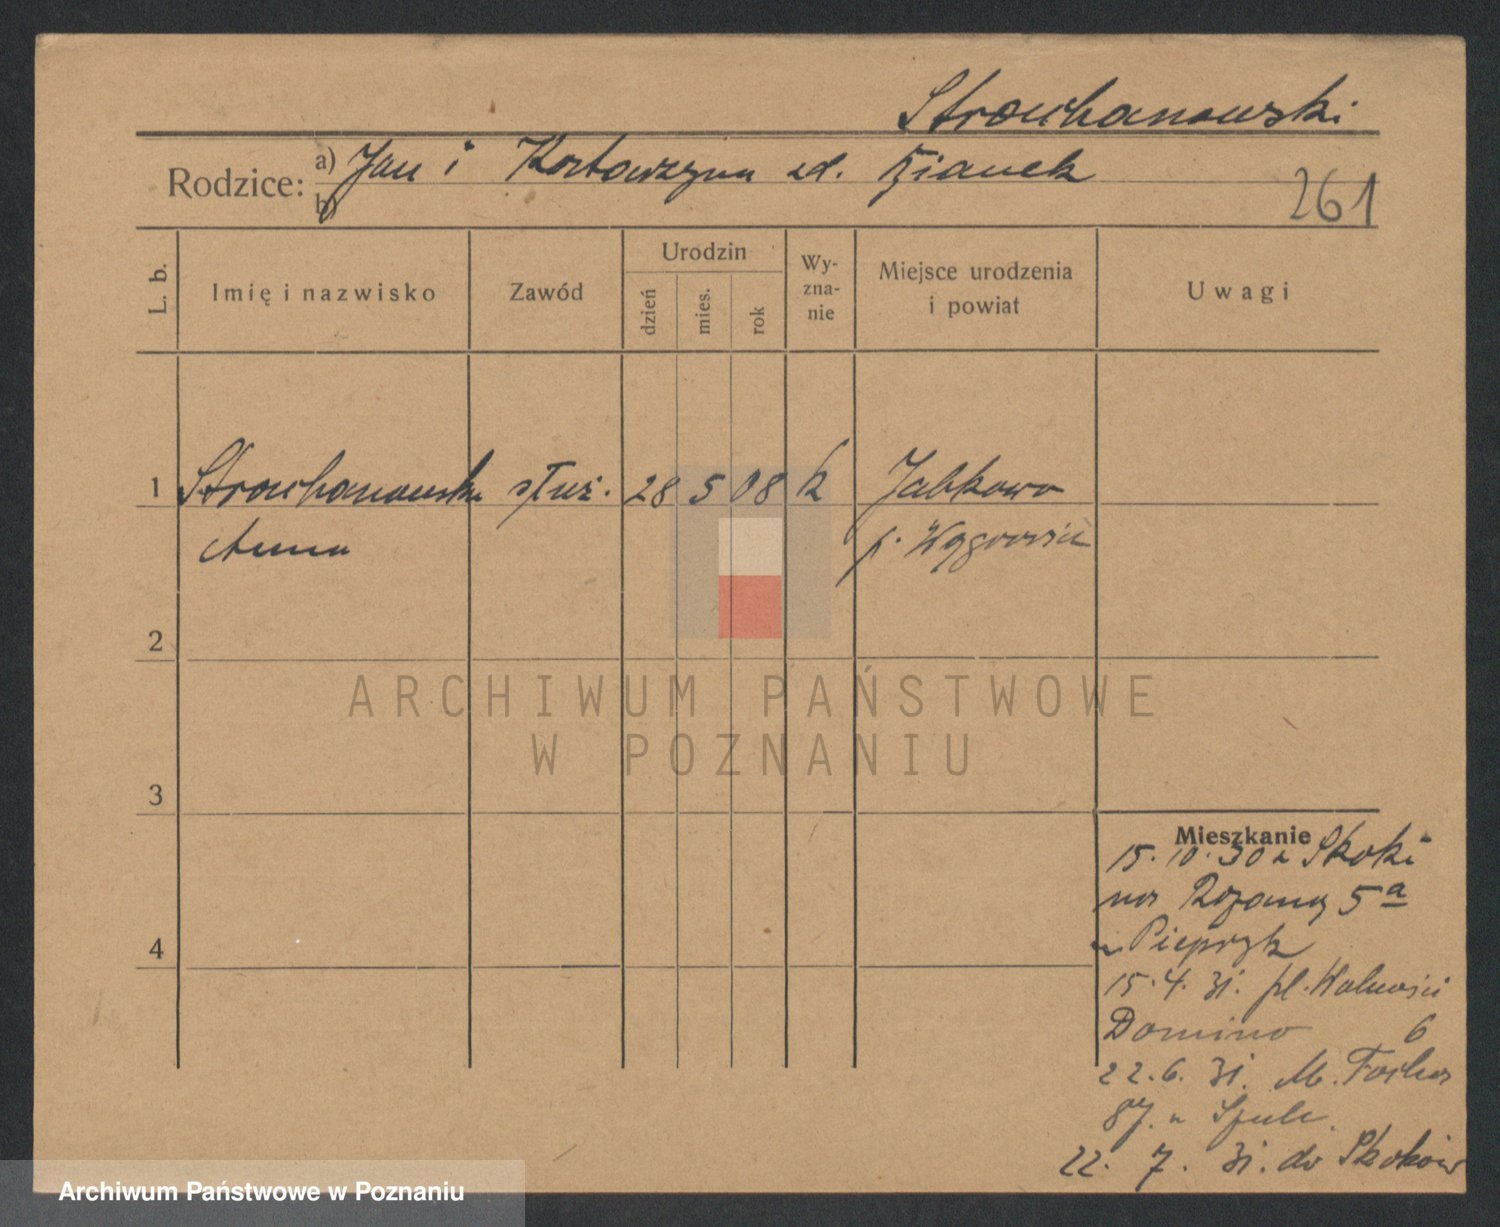 Strouhanowski
Rodzice:
a) Jan i Katarzyna zd.
b)
261
L. b.
Imię i nazwisko
Zawód
Urodzin
dzień
mies.
rok
Wy-
zna-
nie
Miejsce urodzenia
i powiat
Uwagi
1 Strouhanowska służ. 28 5 08 k Jabkowo
Anna p. Wągrowiec
2
ARCHIWUM PAŃSTWOWE
W POZNANIU
3
Mieszkanie
15.10.30 z Skoki
na 5a
u Pieprzyk
15.4.31. pl. Wolności
Domino 6
22.6.31. M. Focha
87. u
22.7.31. do Skoków
4
Archiwum Państwowe w Poznaniu